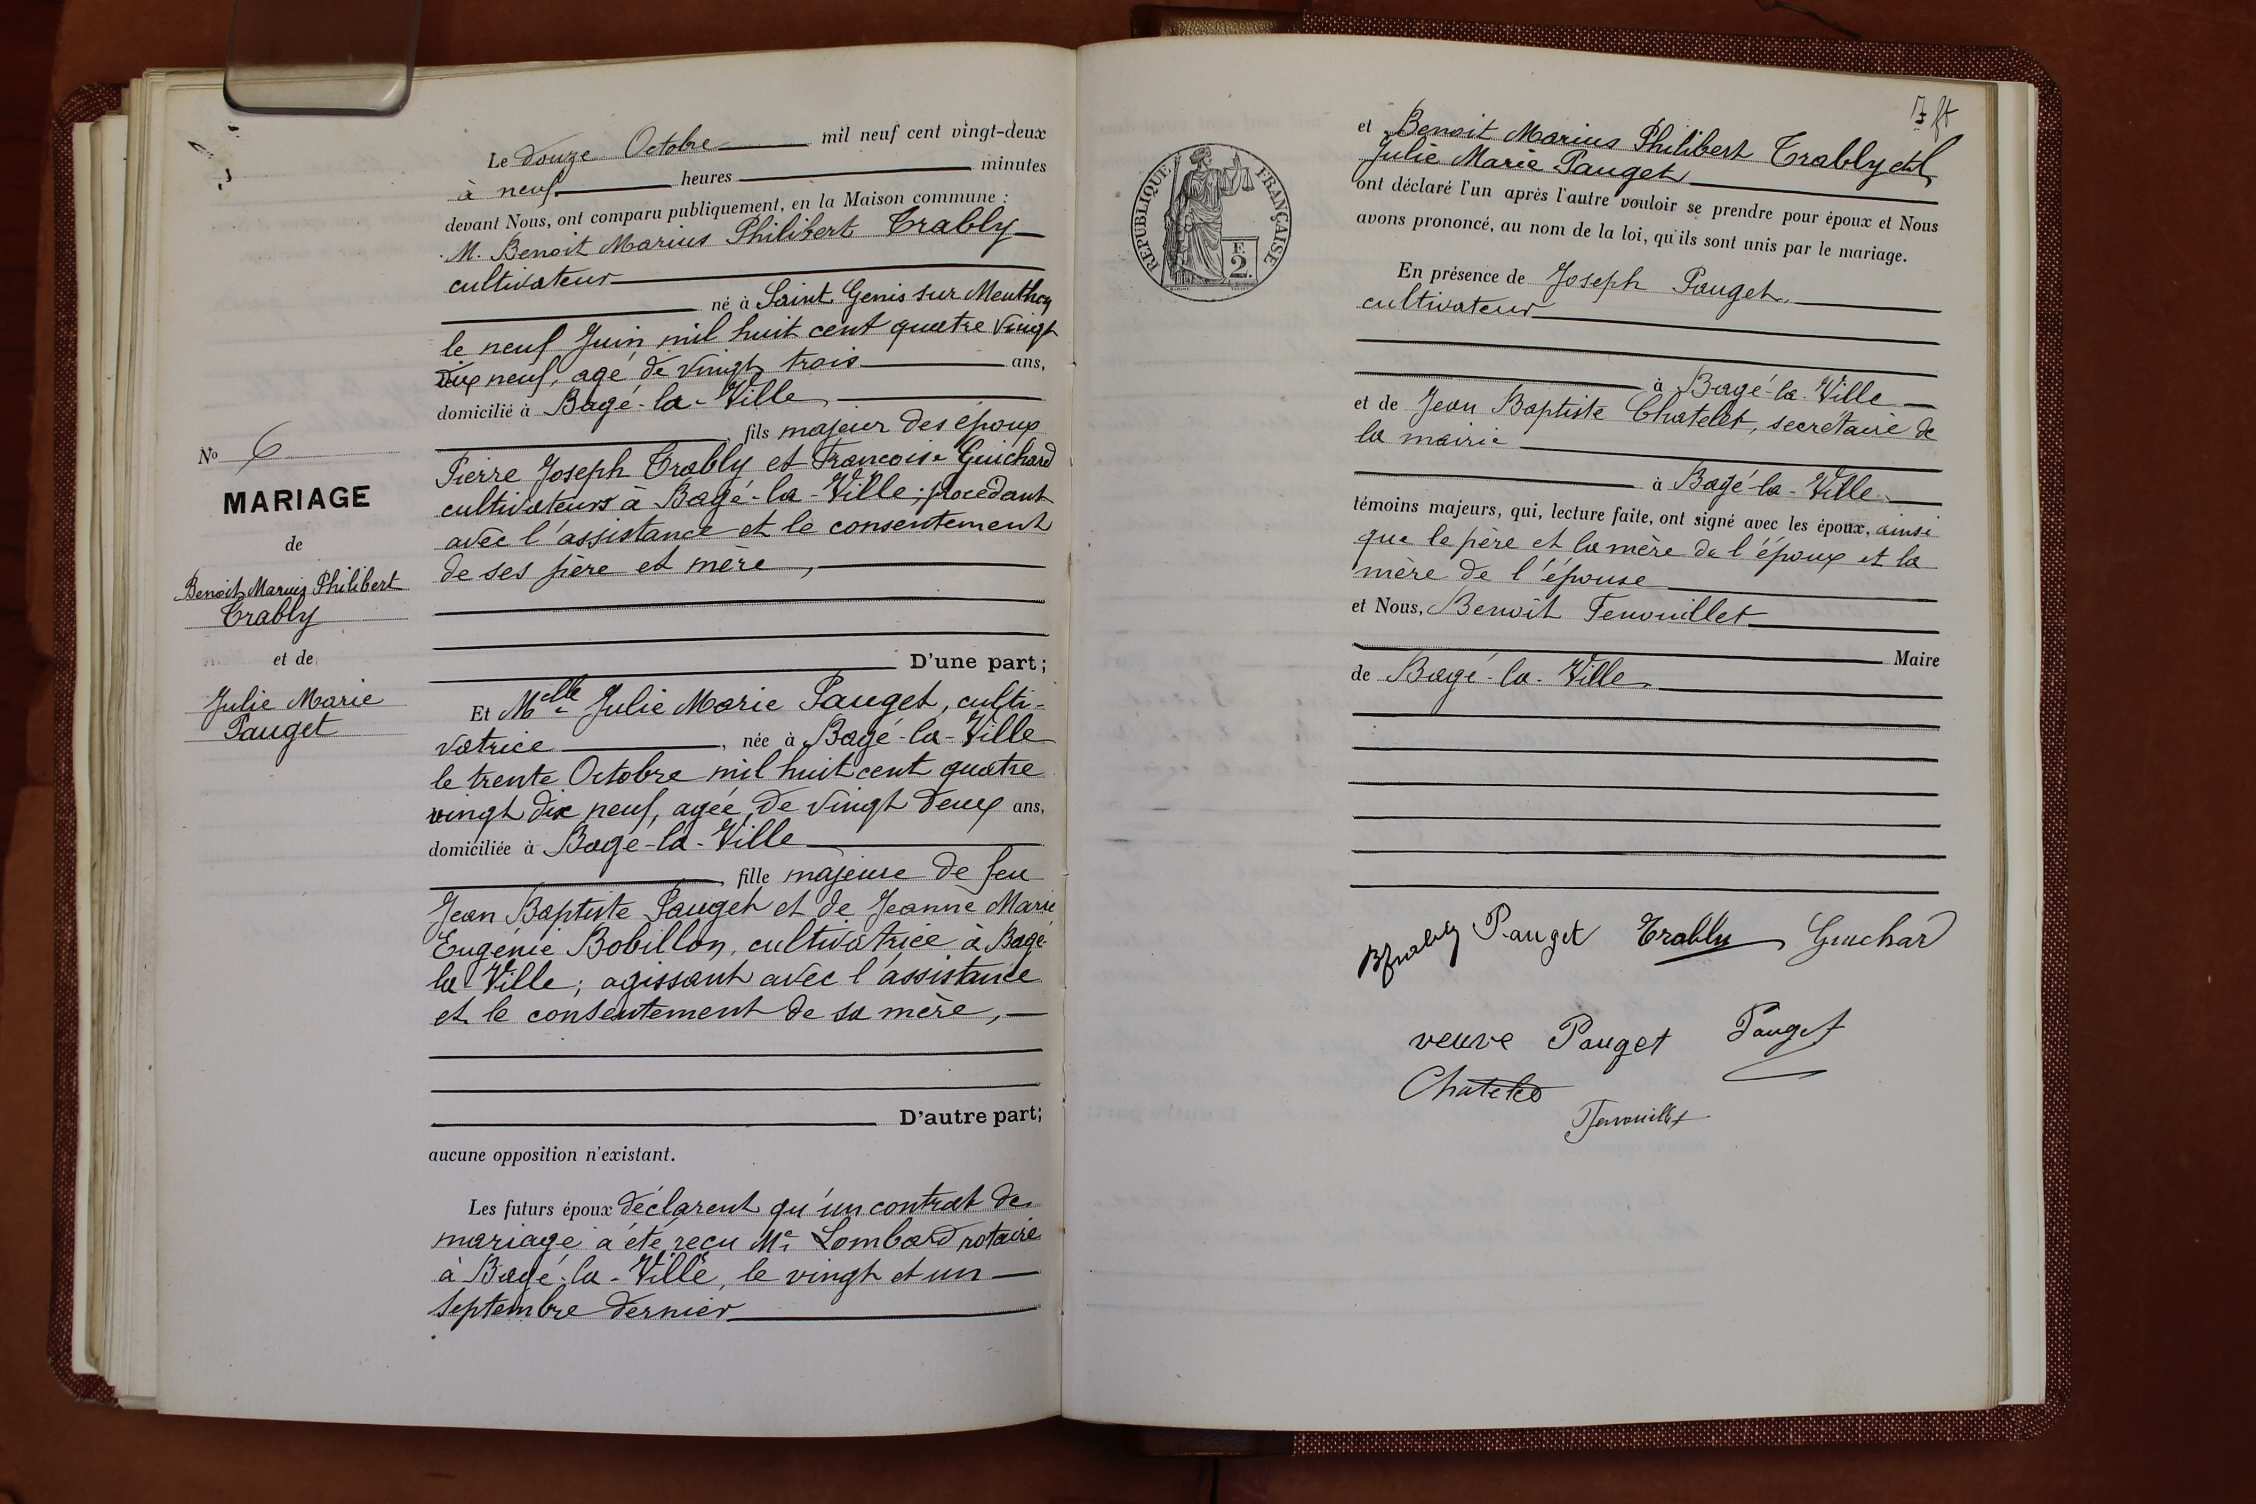 Le douze Octobre mil neuf cent vingt-deux
à neuf heures minutes
devant Nous, ont comparu publiquement, en la Maison commune :
M. Benoit Marius Philibert Trably
cultivateur
né à Saint Genis sur Menthon
le neuf Juin mil huit cent quatre vingt
dix neuf, agé de vingt trois ans,
domicilié à Bagé-la-Ville
fils majeur des époux
Pierre Joseph Trably et Francoise Guichard
cultivateurs à Bagé-la-Ville; procedant
avec l'assistance et le consentement
de ses père et mère,
D'une part;
No 6
MARIAGE
de
Benoit Marius Philibert
Trably
et de
Julie Marie
Pauget
Et Melle Julie Marie Pauget, culti-
vatrice, née à Bagé-la-Ville
le trente Octobre mil huit cent quatre
vingt dix neuf, agée de vingt deux ans,
domiciliée à Bagé-la-Ville
fille majeure de feu
Jean Baptiste Pauget et de Jeanne Marie
Eugénie Bobillon, cultivatrice à Bagé-
la-Ville; agissant avec l'assistance
et le consentement de sa mère,
D'autre part;
aucune opposition n'existant.
Les futurs époux déclarent qu'un contrat de
mariage a été reçu Me Lombard notaire
à Bagé-la-Ville, le vingt et un
septembre dernier
RÉPUBLIQUE FRANÇAISE
F.
2.
et Benoit Marius Philibert Trably et
Julie Marie Pauget
ont déclaré l'un après l'autre vouloir se prendre pour époux et Nous
avons prononcé, au nom de la loi, qu'ils sont unis par le mariage.
En présence de Joseph Pauget,
cultivateur
à Bagé-la-Ville
et de Jean Baptiste Chatelet, secrétaire de
la mairie
à Bagé-la-Ville
témoins majeurs, qui, lecture faite, ont signé avec les époux, ainsi
que le père et la mère de l'époux et la
mère de l'épouse
et Nous, Benoît Fenouillet
Maire
de Bagé-la-Ville
BTrably Pauget Trably Guichard
veuve Pauget Pauget
Chatelet
Fenouillet